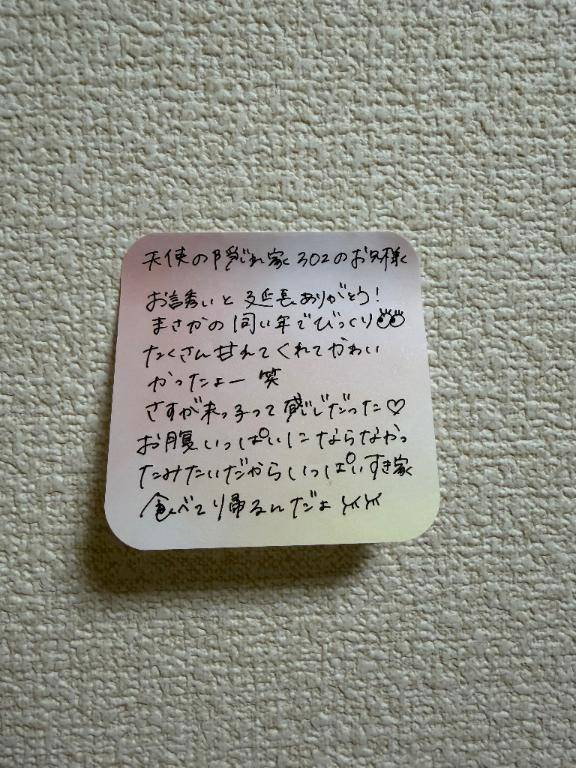 天使の隠れ家302のお客様
お誘いと延長ありがとう!
まさかの同い年でびっくり👀
たくさん甘れてくれてかわい
かったよー 笑
さすが末っ子って感じだった♡
お腹いっぱいにならなかっ
たみたいだからいっぱいすき家
食べてり帰るんだよ